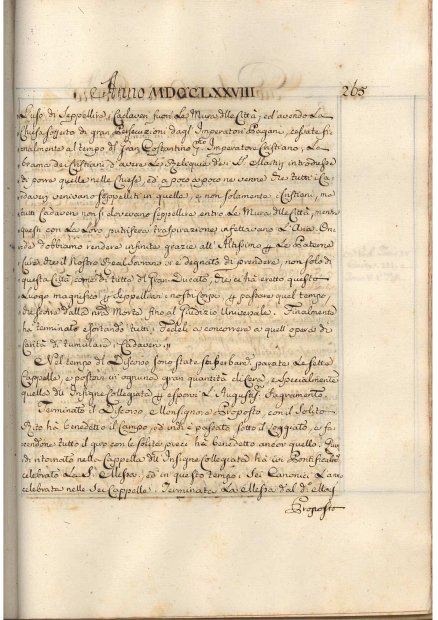 Anno MDCCLXXVIII 265
L'uso di seppellire i Cadaveri fuori le Mura delle Città; ed avendo La
Chiesa sofferto di gran Persecuzioni dagl'Imperatori Pagani, cessate fi-
nalmente al tempo di Gran Costantino Imperatore Cristiano; La
brama dei Cristiani d'avere Le Reliquie de' SS. Martiri introdusse
di porre quelle nelle Chiese, ed a poco a poco ne venne che tutti i Ca-
daveri venivano seppelliti in quelle, e non solamente i Cristiani, ma
tutti Cadaveri non si dovevano seppellire entro Le Mura delle Città, mentre
questi con La Loro putrifera traspirazione infettavano L'Aria. On-
de dobbiamo rendere infinite grazie all'Altissimo e Le Paterne
Cure che il nostro Real Sovrano si è degnato di prendere, non solo di
questa Città come di tutto il Gran Ducato, che ci ha eretto questo
Luogo magnifico per seppellirvi i nostri Corpi, e passare quel tempo,
che sarà dalla nostra Morte fino al Giudizio Universale. Finalmente
ha terminato esortando tutti i Fedeli a concorrere a quell'opera di
carità di tumulare i Cadaveri.
Nel tempo del Discorso sono state superbam. parate Le sette
Cappelle, e postovi in ognuna gran quantità di Cera, e specialmente
quella dell'Insigne Collegiata per esporvi L'Augustis. Sagramento.
Terminato il Discorso, Monsignore Proposto, con il solito
Rito ha benedetto il Campo, ed indi è passato sotto il Loggiato, e fa-
cendone tutto il giro con le solite preci ha benedetto ancor quello. Quin-
di ritornato nella Cappella dell'Insigne Collegiata ha ivi Pontificalmte
celebrato La S. Messa, ed in questo tempo, Sei Canonici L'an
celebrata nelle Sei Cappelle. Terminata La Messa d'al di Monsi
Proposto